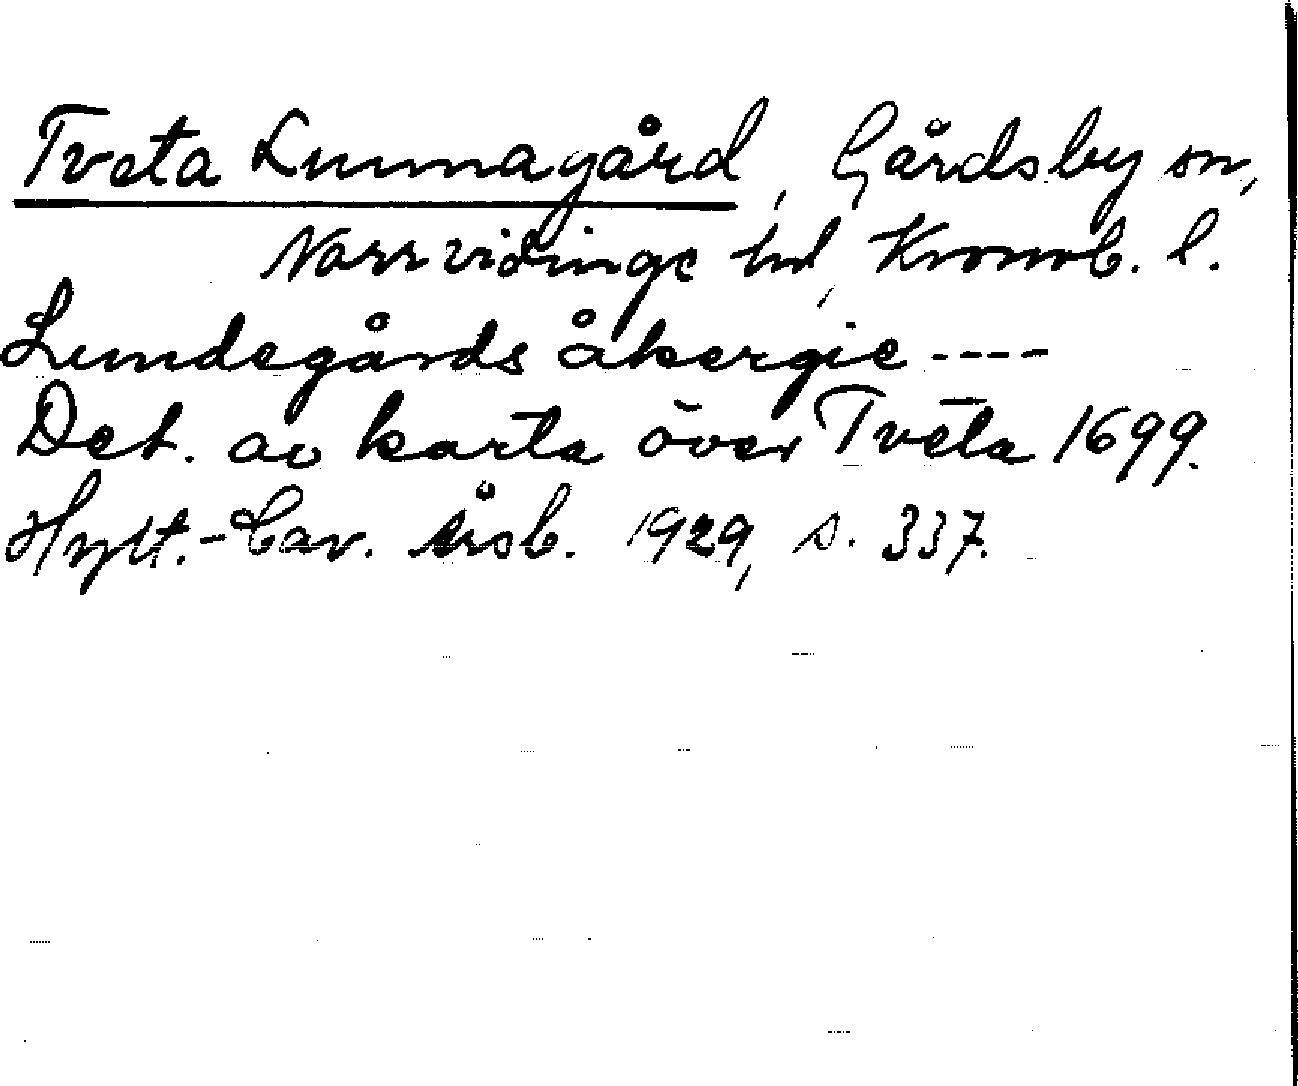 Tveta Lunnagård, Gårdsby sn,
Norrvidinge hd, Kronob. l.
Lundegårds åkergie ----
Det. av karta över Tveta 1699.
Hylt.-Cav. årsb. 1929, s. 337.